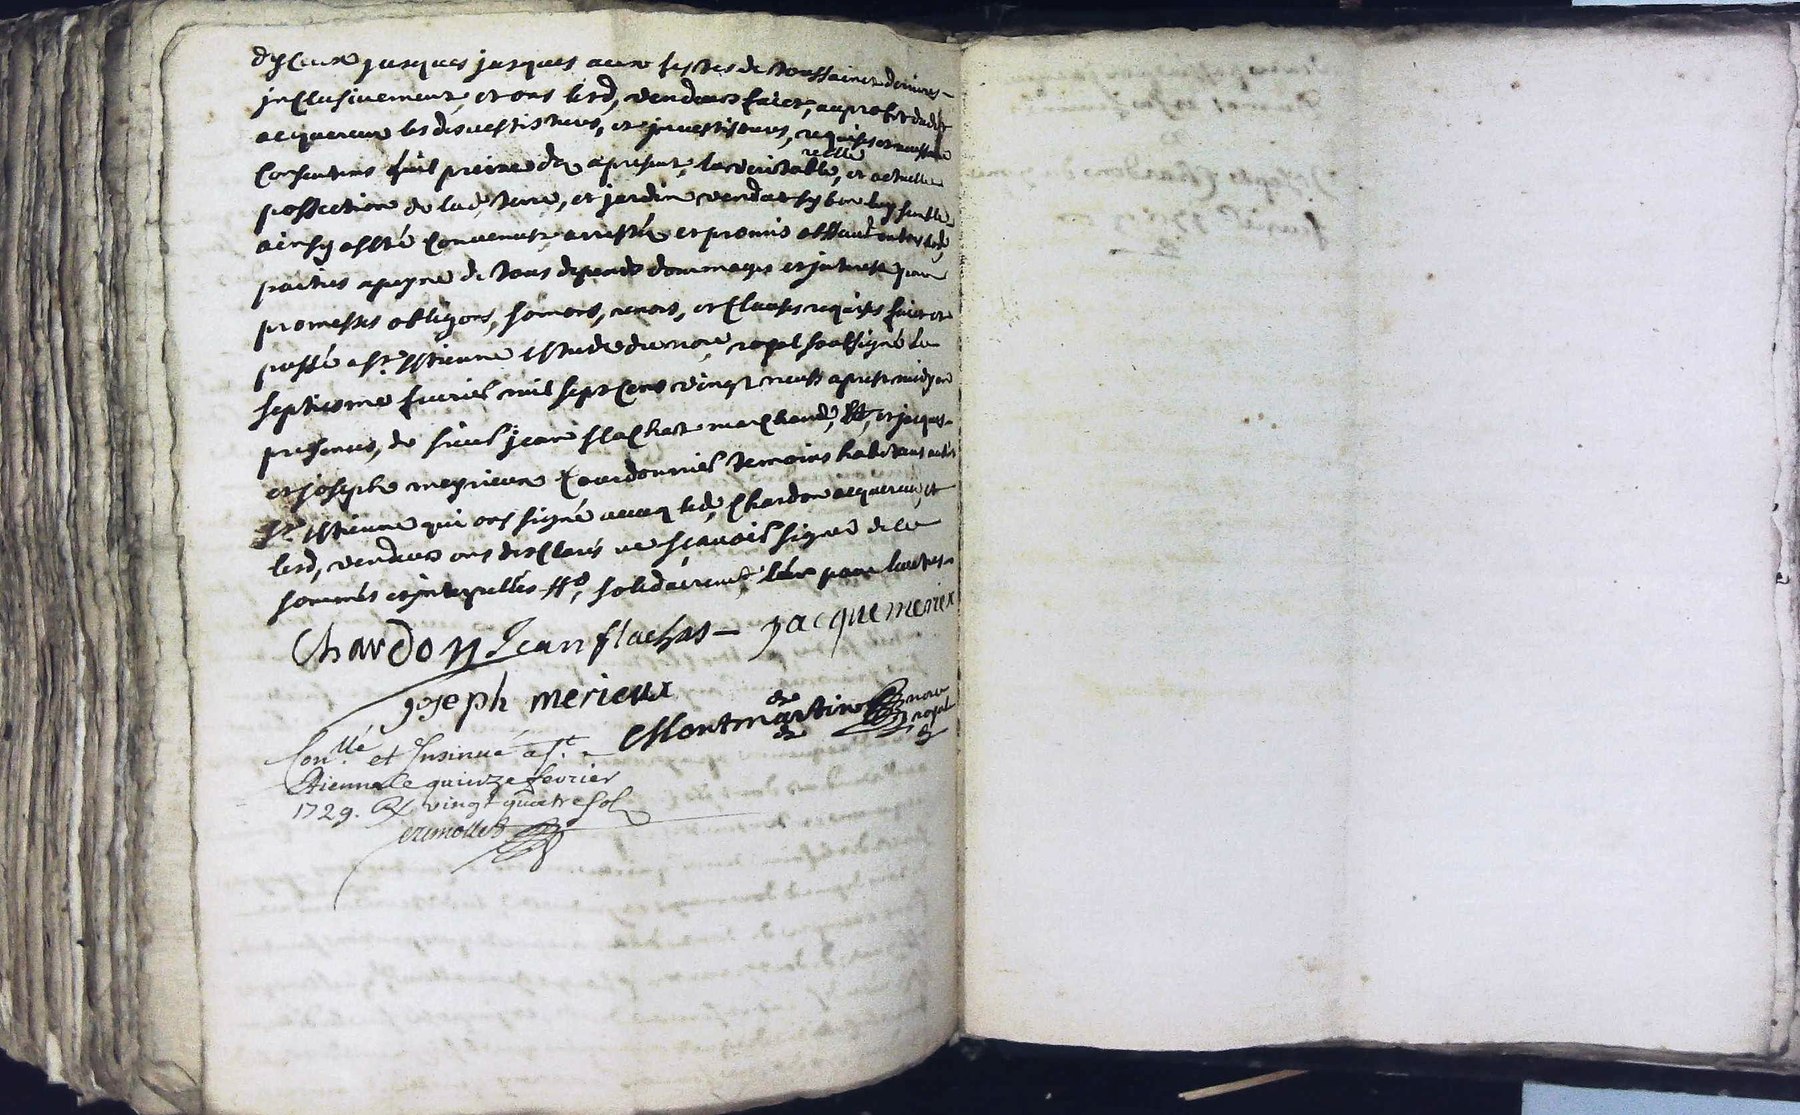 d'yceux jusques jusques aux festes de toussainct dernieres
inclusivement, et ont lesd, vendeurs faict, au profit dudit
acquereur les desvestitures, et jnvestitures, requises et necessaire
Consentens quil preine des apresent, la veritable, reelle et actuelle
possection de lad, terre, et jardin vendus sy bon luy semble
ainsy a esté Convenut, arresté et promis observé entre lesd,
parties apeyne de tous depends dommages et jnterest par
promesses obligons, soumons, renons, et Clauses requises faict et
passé a St. Estienne estude du nore royal soubsigné le
septiesme fevrier mil sept Cent vingt neuf apres midy en
presences, de sieur jean flachat marchand, et jacques
et joseph meyrieux Courdonnier temoins habitans audit
St. Estienne qui ont signé avecq led, Chardon acquereur, et
lesd, vendeurs ont desclarés ne sçavoir signer de ce
sommés et jnterpellés solidairemt, par
Chardon Jean flachat jacque merieu
joseph merieux
Montmartin nore
royal
Con.llé et Insinué a St.
Etienne le quinze fevrier
1729. R vingt quatre sols